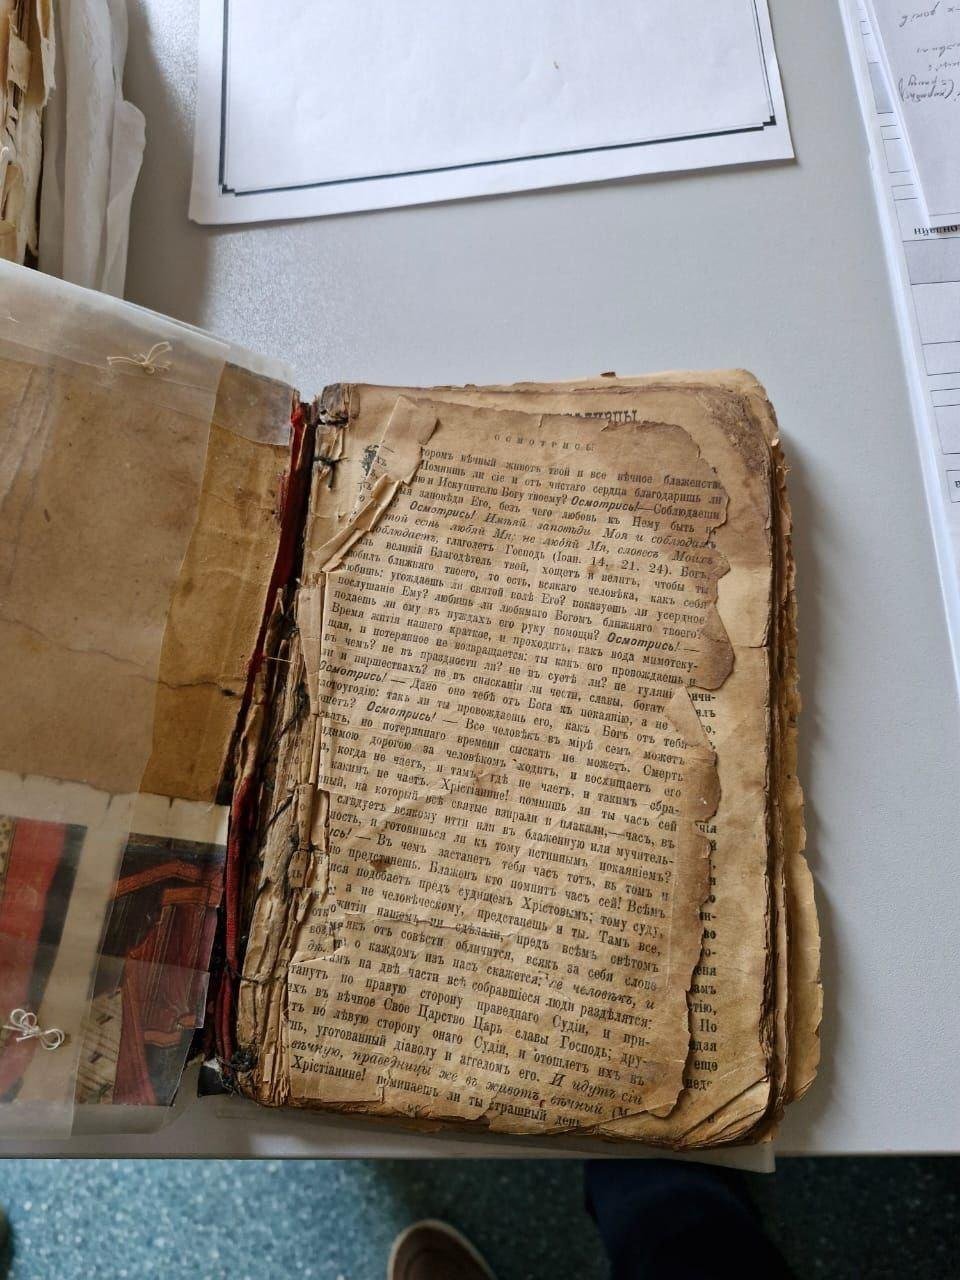 ОСМОТРИСЬ
торомъ вѣчный животъ твой и все вѣчное блаженств
Помнишь ли сіе и отъ чистаго сердца благодаришь ли
ю и Искупителю Богу твоему? Осмотрись!—Соблюдаеши
заповѣди Его, безъ чего любовь къ Нему быть н
Осмотрись! Имѣяй заповѣди Моя и соблюдая
той есть любяй Мя; не любяй Мя, словесъ Моихъ
облюдаетъ, глаголетъ Господь (Іоан. 14, 21. 24). Богъ,
великій Благодѣтель твой, хощетъ и велитъ, чтобы ты
любилъ ближняго твоего, то есть, всякаго человѣка, какъ себя
любишь: угождаешь ли святой волѣ Его? показуешь ли усердное
послушаніе Ему? любишь ли любимаго Богомъ ближняго твоего?
подаешь ли ему въ нуждахъ его руку помощи? Осмотрись! —
Время житія нашего краткое, и проходитъ, какъ вода мимотеку-
щая, и потерянное не возвращается: ты какъ его провождаешь и
въ чемъ? не въ праздности ли? не въ суетѣ ли? не гуляні
ли и пиршествахъ? не въ снисканіи ли чести, славы, богатс
Осмотрись! — Дано оно тебѣ отъ Бога къ покаянію, а не
лотоугодію: такъ ли ты провождаешь его, какъ Богъ отъ тебя
ощетъ? Осмотрись! — Все человѣкъ въ мірѣ семъ можетъ
кать, но потеряннаго времени сыскать не можетъ. Смерть
идимою дорогою за человѣкомъ ходитъ, и восхищаетъ его
а, когда не чаетъ, и тамъ, гдѣ не чаетъ, и такимъ обра-
какимъ не чаетъ. Хрістіанине! помнишь ли ты часъ сей
ный, на который всѣ святые взирали и плакали,—часъ, въ
слѣдуетъ всякому итти или въ блаженную или мучитель-
ность, и готовишься ли къ тому истиннымъ покаяніемъ?
ись! — Въ чемъ застанетъ тебя часъ тотъ, въ томъ и
ю предстанешь. Блаженъ кто помнитъ часъ сей! Всѣмъ
ися подобаетъ предъ судищемъ Хрістовымъ; тому суду,
а не человѣческому, предстанешь и ты. Тамъ все,
житіи нашемъ ни сдѣлали, предъ всѣмъ свѣтомъ
якъ отъ совѣсти обличится, всякъ за себя слово
о каждомъ изъ насъ скажется: се человѣкъ, и
Тамъ на двѣ части всѣ собравшіеся люди раздѣлятся:
танутъ по правую сторону праведнаго Судіи, и при-
ихъ въ вѣчное Свое Царство Царь славы Господь; дру-
тъ по лѣвую сторону онаго Судіи, и отошлетъ ихъ въ
нь, уготованный діаволу и аггеломъ его. И идутъ сіи
вѣчную, праведницы же въ животъ вѣчный (М
Хрістіанине! помипаешь ли ты страшный день